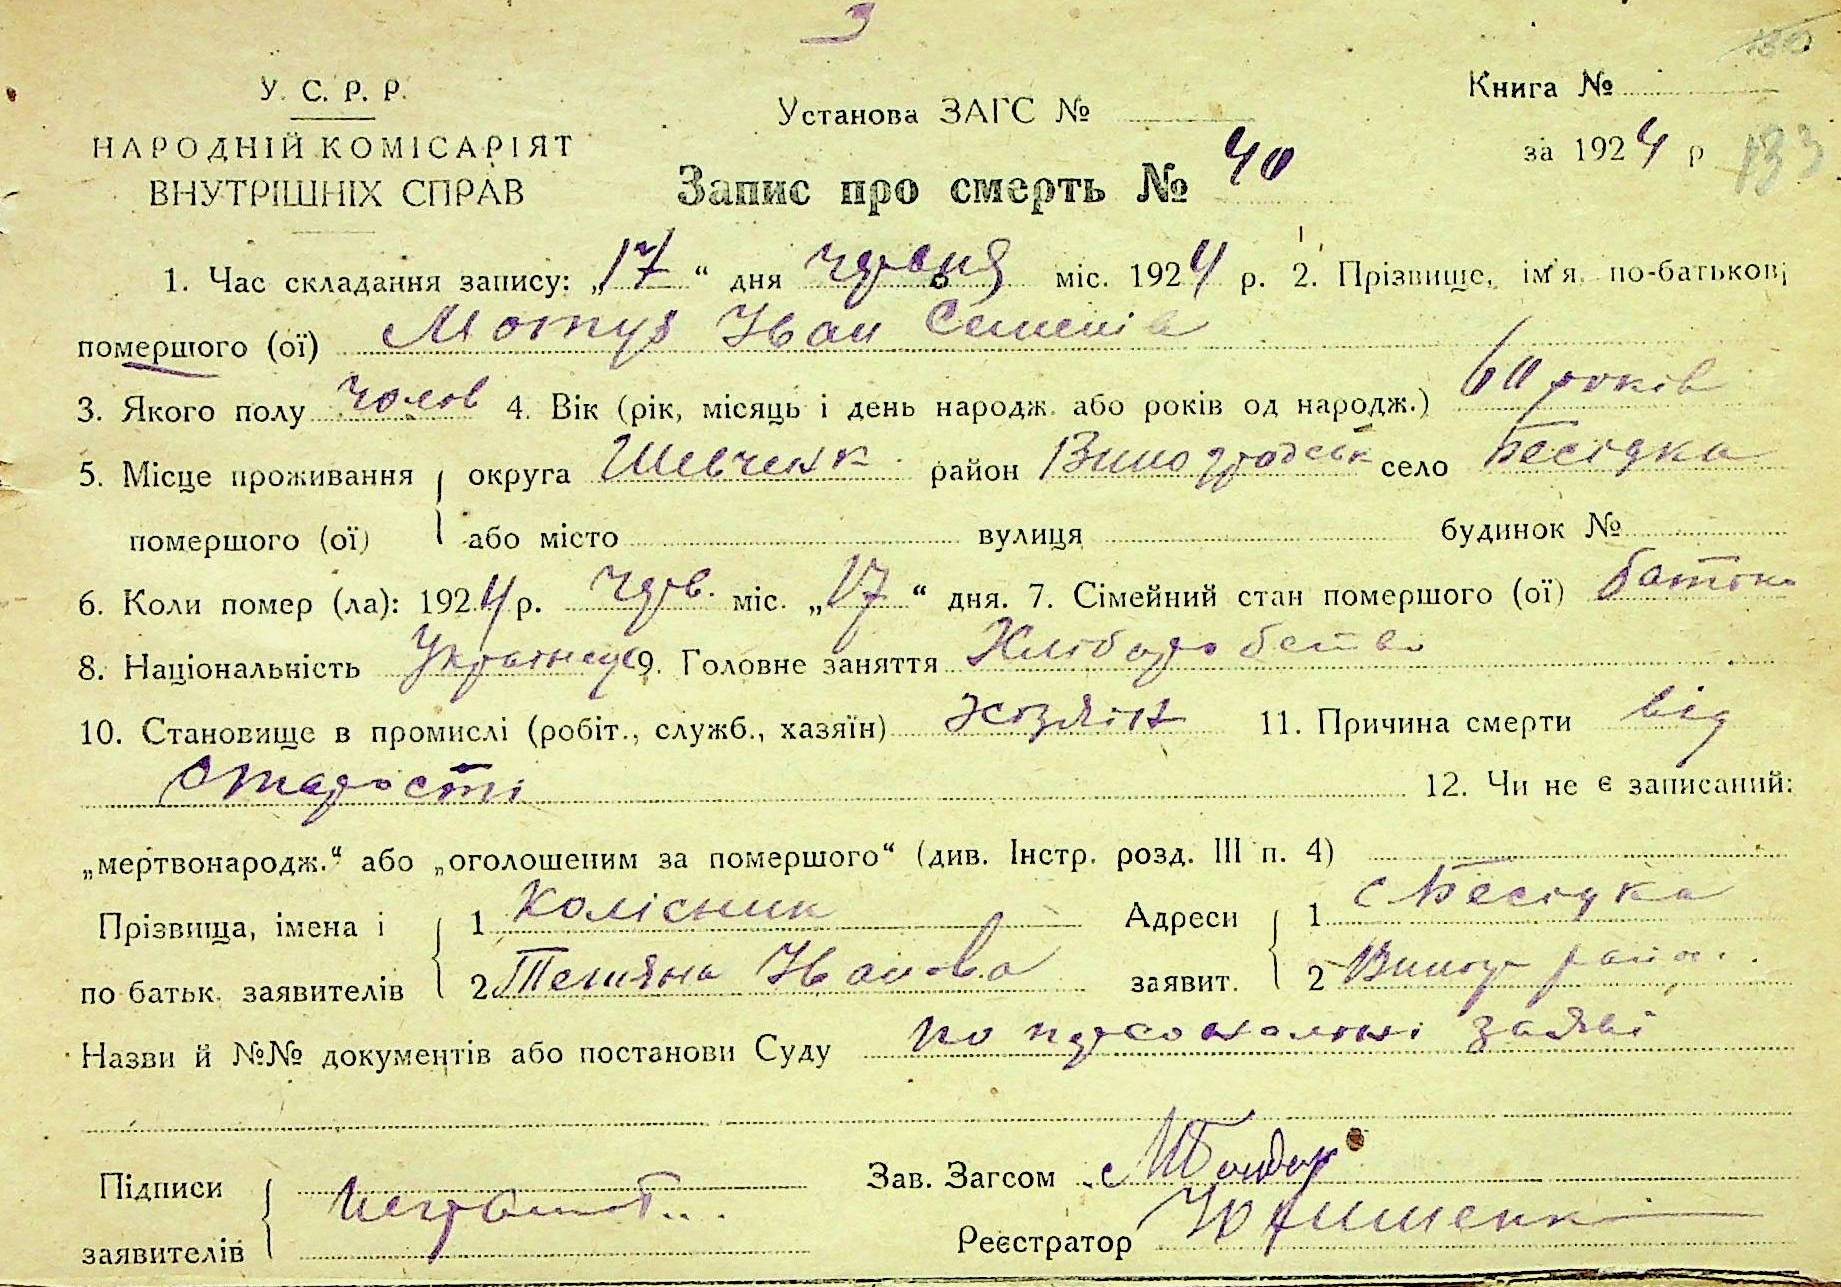 З
У. С. Р. Р.
НАРОДНІЙ КОМІСАРІЯТ
ВНУТРІШНІХ СПРАВ
Установа ЗАГС №
Книга №
за 1924 р 133
Запис про смерть № 40
1. Час складання запису: „17“ дня червня міс. 1924 р. 2. Прізвище, ім'я, по-батькові
помершого (ої) Мотуз Іван Семенів
3. Якого полу чолов 4. Вік (рік, місяць і день народж. або років од народж.) 60 років
5. Місце проживання округа Шевченк. район Виноградськ село Бесідка
помершого (ої) або місто вулиця будинок №
6. Коли помер (ла): 1924 р. черв. міс. „17“ дня. 7. Сімейний стан помершого (ої) батько
8. Національність Українец 9. Головне заняття Хліборобство
10. Становище в промислі (робіт., служб., хазяїн) хозяїн 11. Причина смерти від
старости 12. Чи не є записаний:
„мертвонародж.“ або „оголошеним за помершого“ (див. Інстр. розд. III п. 4)
Прізвища, імена і 1 Колісник Адреси 1 с Бесідка
по батьк. заявителів 2 Тетяна Іванова заявит. 2 Виногр район.
Назви й №№ документів або постанови Суду по персональні заяві
Підписи неграмот...
заявителів
Зав. Загсом М Бондар
Реєстратор